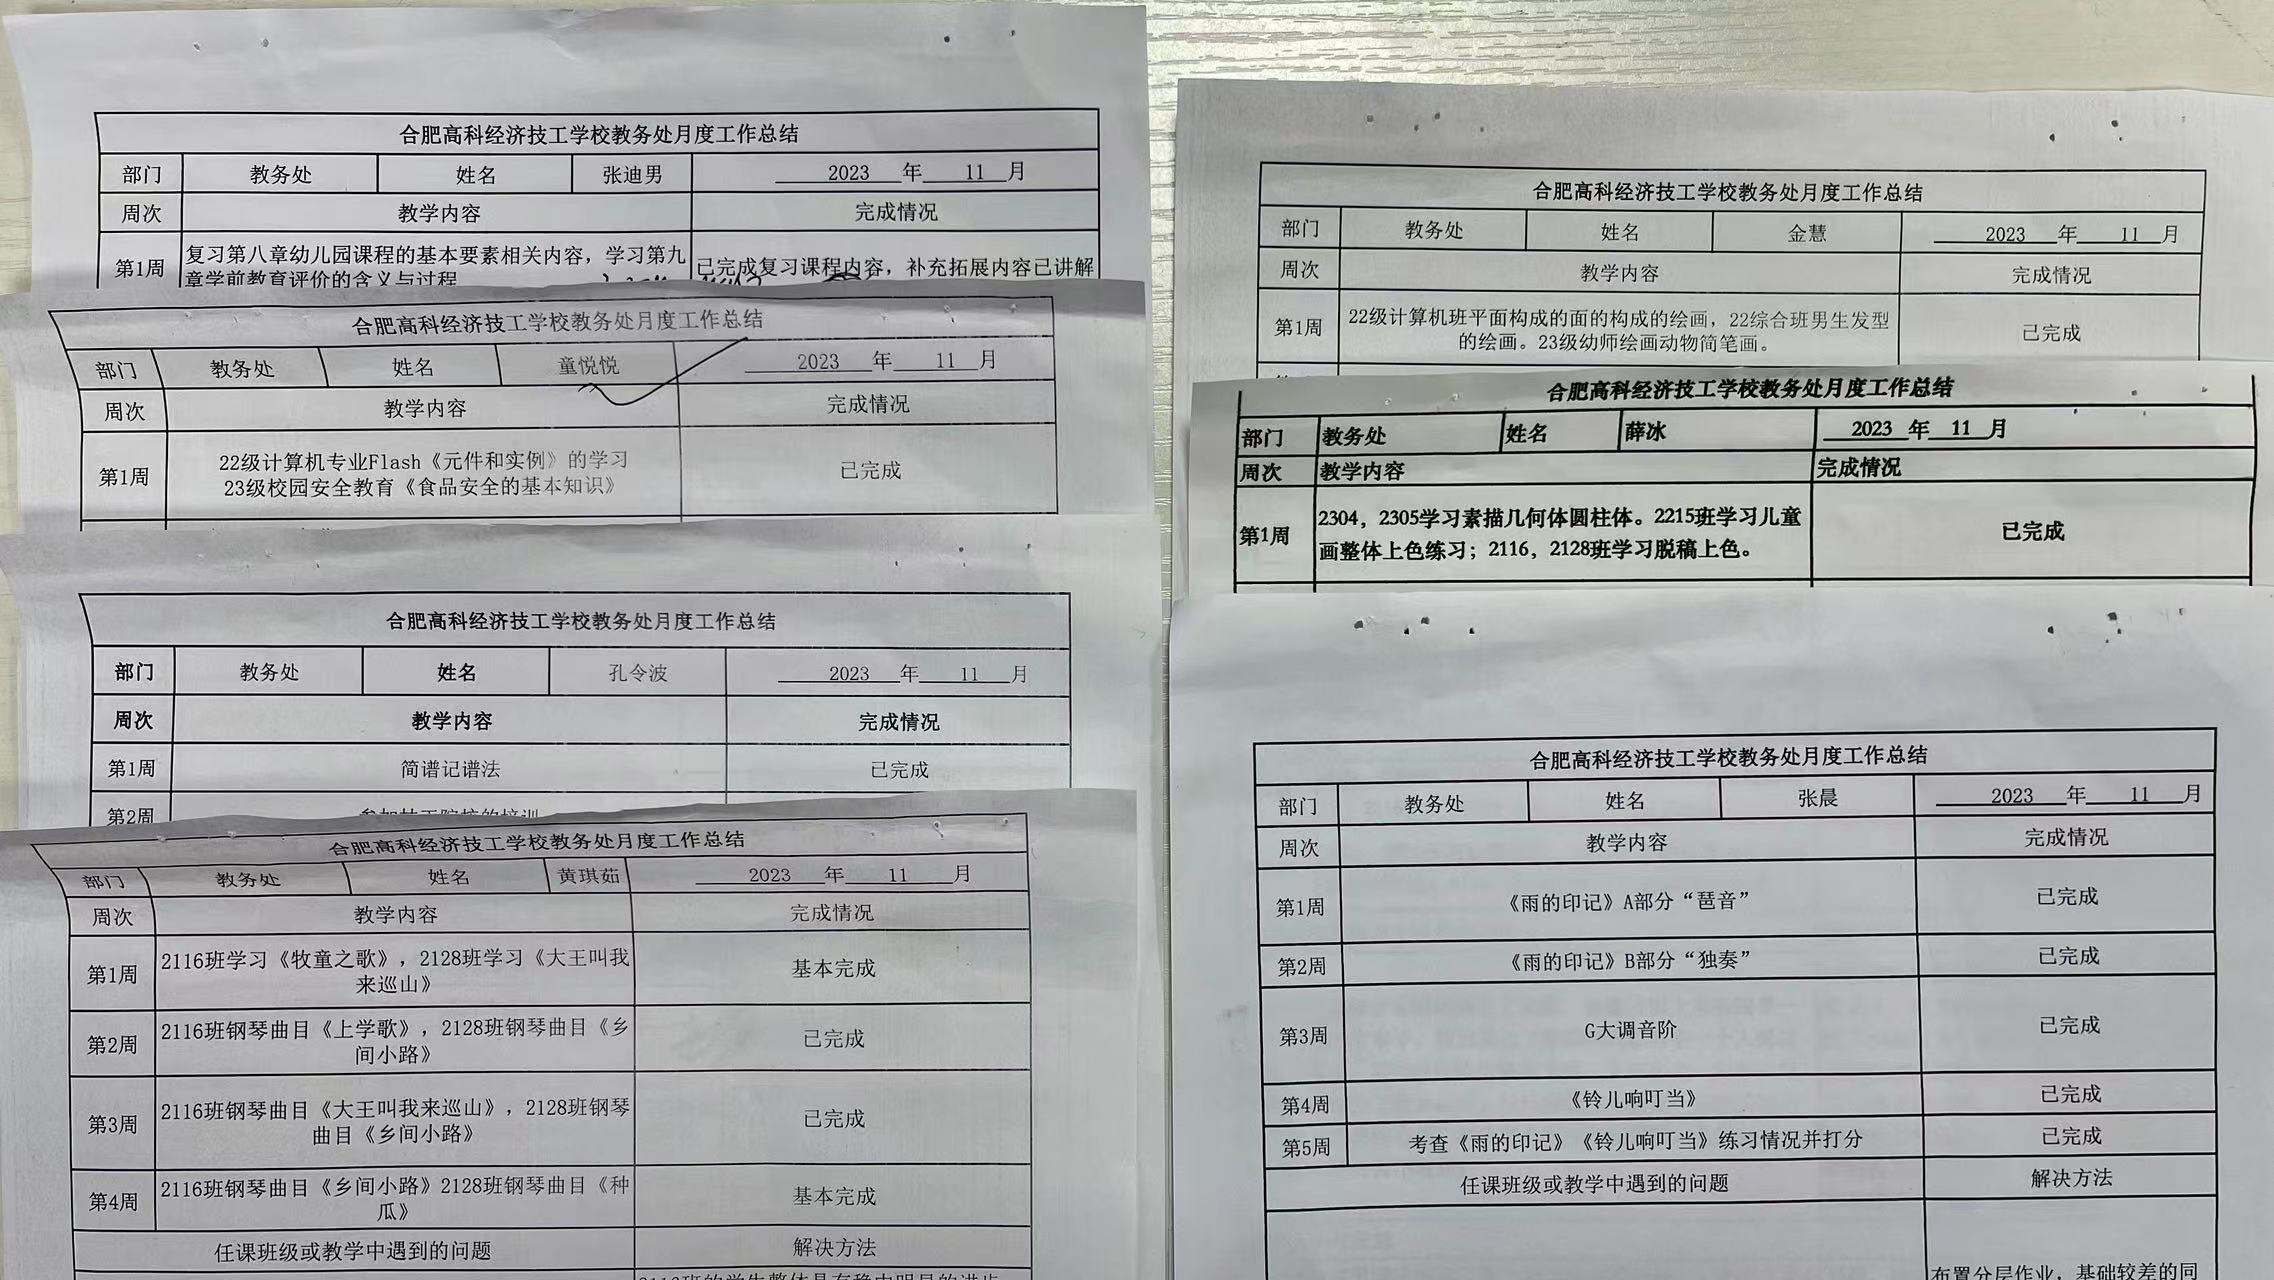 合肥高科经济技工学校教务处月度工作总结
部门 教务处 姓名 张迪男 2023 年 11 月
周次 教学内容 完成情况
第1周 复习第八章幼儿园课程的基本要素相关内容，学习第九
章学前教育评价的含义与过程 已完成复习课程内容，补充拓展内容已讲解
合肥高科经济技工学校教务处月度工作总结
部门 教务处 姓名 童悦悦 2023 年 11 月
周次 教学内容 完成情况
第1周 22级计算机专业Flash《元件和实例》的学习
23级校园安全教育《食品安全的基本知识》 已完成
合肥高科经济技工学校教务处月度工作总结
部门 教务处 姓名 孔令波 2023 年 11 月
周次 教学内容 完成情况
第1周 简谱记谱法 已完成
第2周
合肥高科经济技工学校教务处月度工作总结
部门 教务处 姓名 黄琪茹 2023 年 11 月
周次 教学内容 完成情况
第1周 2116班学习《牧童之歌》，2128班学习《大王叫我
来巡山》 基本完成
第2周 2116班钢琴曲目《上学歌》，2128班钢琴曲目《乡
间小路》 已完成
第3周 2116班钢琴曲目《大王叫我来巡山》，2128班钢琴
曲目《乡间小路》 已完成
第4周 2116班钢琴曲目《乡间小路》2128班钢琴曲目《种
瓜》 基本完成
任课班级或教学中遇到的问题 解决方法
合肥高科经济技工学校教务处月度工作总结
部门 教务处 姓名 金慧 2023 年 11 月
周次 教学内容 完成情况
第1周 22级计算机班平面构成的面的构成的绘画，22综合班男生发型
的绘画。23级幼师绘画动物简笔画。 已完成
合肥高科经济技工学校教务处月度工作总结
部门 教务处 姓名 薛冰 2023 年 11 月
周次 教学内容 完成情况
第1周 2304，2305学习素描几何体圆柱体。2215班学习儿童
画整体上色练习；2116，2128班学习脱稿上色。 已完成
合肥高科经济技工学校教务处月度工作总结
部门 教务处 姓名 张晨 2023 年 11 月
周次 教学内容 完成情况
第1周 《雨的印记》A部分“琶音” 已完成
第2周 《雨的印记》B部分“独奏” 已完成
第3周 G大调音阶 已完成
第4周 《铃儿响叮当》 已完成
第5周 考查《雨的印记》《铃儿响叮当》练习情况并打分 已完成
任课班级或教学中遇到的问题 解决方法
布置分层作业，基础较差的同